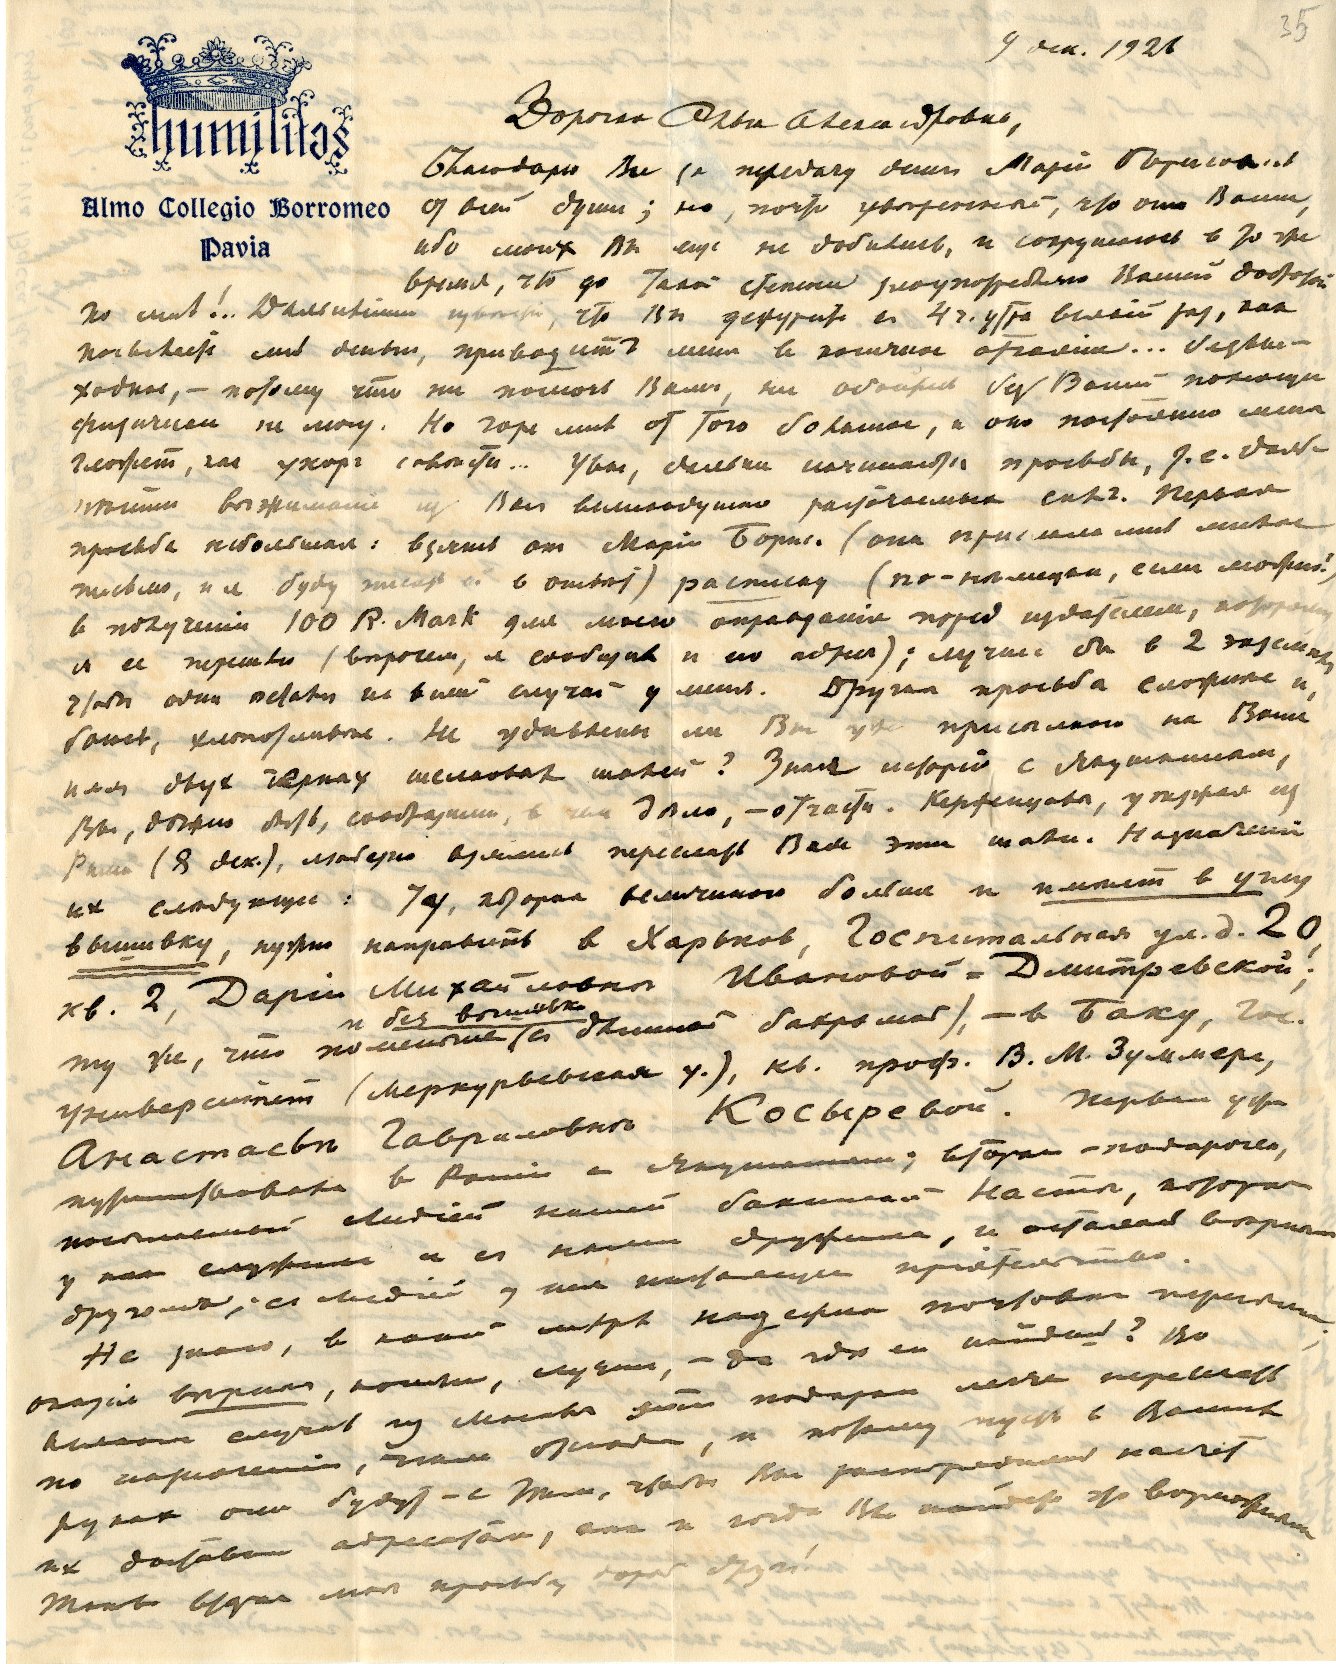 35
9 дек. 1926
humilitas
Almo Collegio Borromeo
Pavia
Дорогая Ольга Александровна,
Благодарю Вас за передачу денег Маріи Борисовне
от всей души; но, почти уверенный, что они Ваши,
ибо моих Вы еще не добились, и сокрушаюсь в то же
время, что до такой степени злоупотребляю Вашей добротой
ко мне!.. Дальнейшее, что Вы дежурите с 4 ч. утра всякий раз, как
посылаете мне деньги, приводит меня в конечное отчаяние... безвы-
ходное, — потому что ни помочь Вам, ни обойтись без Вашей помощи
физически не могу. Но горе мне от того большое, и оно постоянно меня
гложет, как укор совести... Увы, дальше начинаются просьбы, т. е. даль-
нейшее выжимание из Вас великодушно расточаемых сил. Первая
просьба небольшая: взять от Маріи Борис. (она прислала мне милое
письмо, и я буду писать ей в ответ) расписку (по-немецки, если можно!)
в полученіи 100 R. Mark для моего оправданія перед издателем, которому
я ее перешлю (впрочем, я сообщил и ее адрес); лучше бы в 2 экземплярах
чтобы один остался на всякий случай у меня. Другая просьба сложнее и,
боюсь, хлопотливее. Не удивлены ли Вы уже присылкою на Ваше
имя двух черных шелковых шалей? Зная исторію с Якушкиными,
Вы, должно быть, сообразили, в чем дело, — отчасти. Керженцевы, уезжая из
Рима (8 дек.), любезно взялись переслать Вам эти шали. Назначеніе
их следующее: Ту, которая величиною больше и имеет в углу
вышивку, нужно направить в Харьков, Госпитальная ул. д. 20,
кв. 2, Даріи Михайловне Ивановой-Дмитревской;
и без вышивки
ту же, что поменьше (с длинной бахромой), — в Баку, Гос.
Университет (Меркурьевская у.), кв. проф. В. М. Зуммера,
Анастасьи Гавриловне Косыревой. Первая уже
путешествовала в Россію с Якушкиными; вторая — подарочек,
посылаемый Лидіей нашей бакинской Насте, которая
у нас служила и с нами дружила, и осталась верным
другом; с Лидіей у нея настоящее пріятельство.
Не знаю, в какой мере надежна почтовая пересылка;
оказія верная, конечно, лучше, — да где ее найдешь? Во
всяком случае из Москвы эти подарки легче переслать
по назначенію, чем отсюда, и потому пусть в Ваших
руках они будут — с тем, чтобы Вы распорядились насчет
их доставки адресатам, как и когда Вы найдете это возможным
Такова вторая моя просьба, дорогой друг!